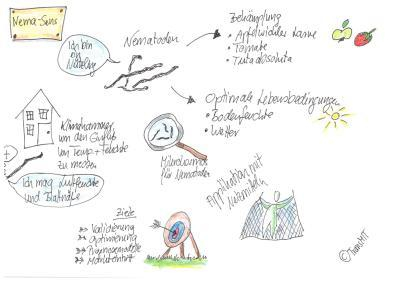 Nema-Sens
Ich bin
ein
Nützling
Nematoden
Bekämpfung
• Apfelwickler Larve
• Tomate
• Tuta absoluta
Optimale Lebensbedingungen
• Bodenfeuchte
• Wetter
Klimakammer
um den Einfluss
von Temp + Feuchte
zu messen
Ich mag Luftfeuchte
und Blattnässe
für Nematoden
Applikation mit
Ziele
Validierung
Optimierung
Prognosemodelle
© TransMIT